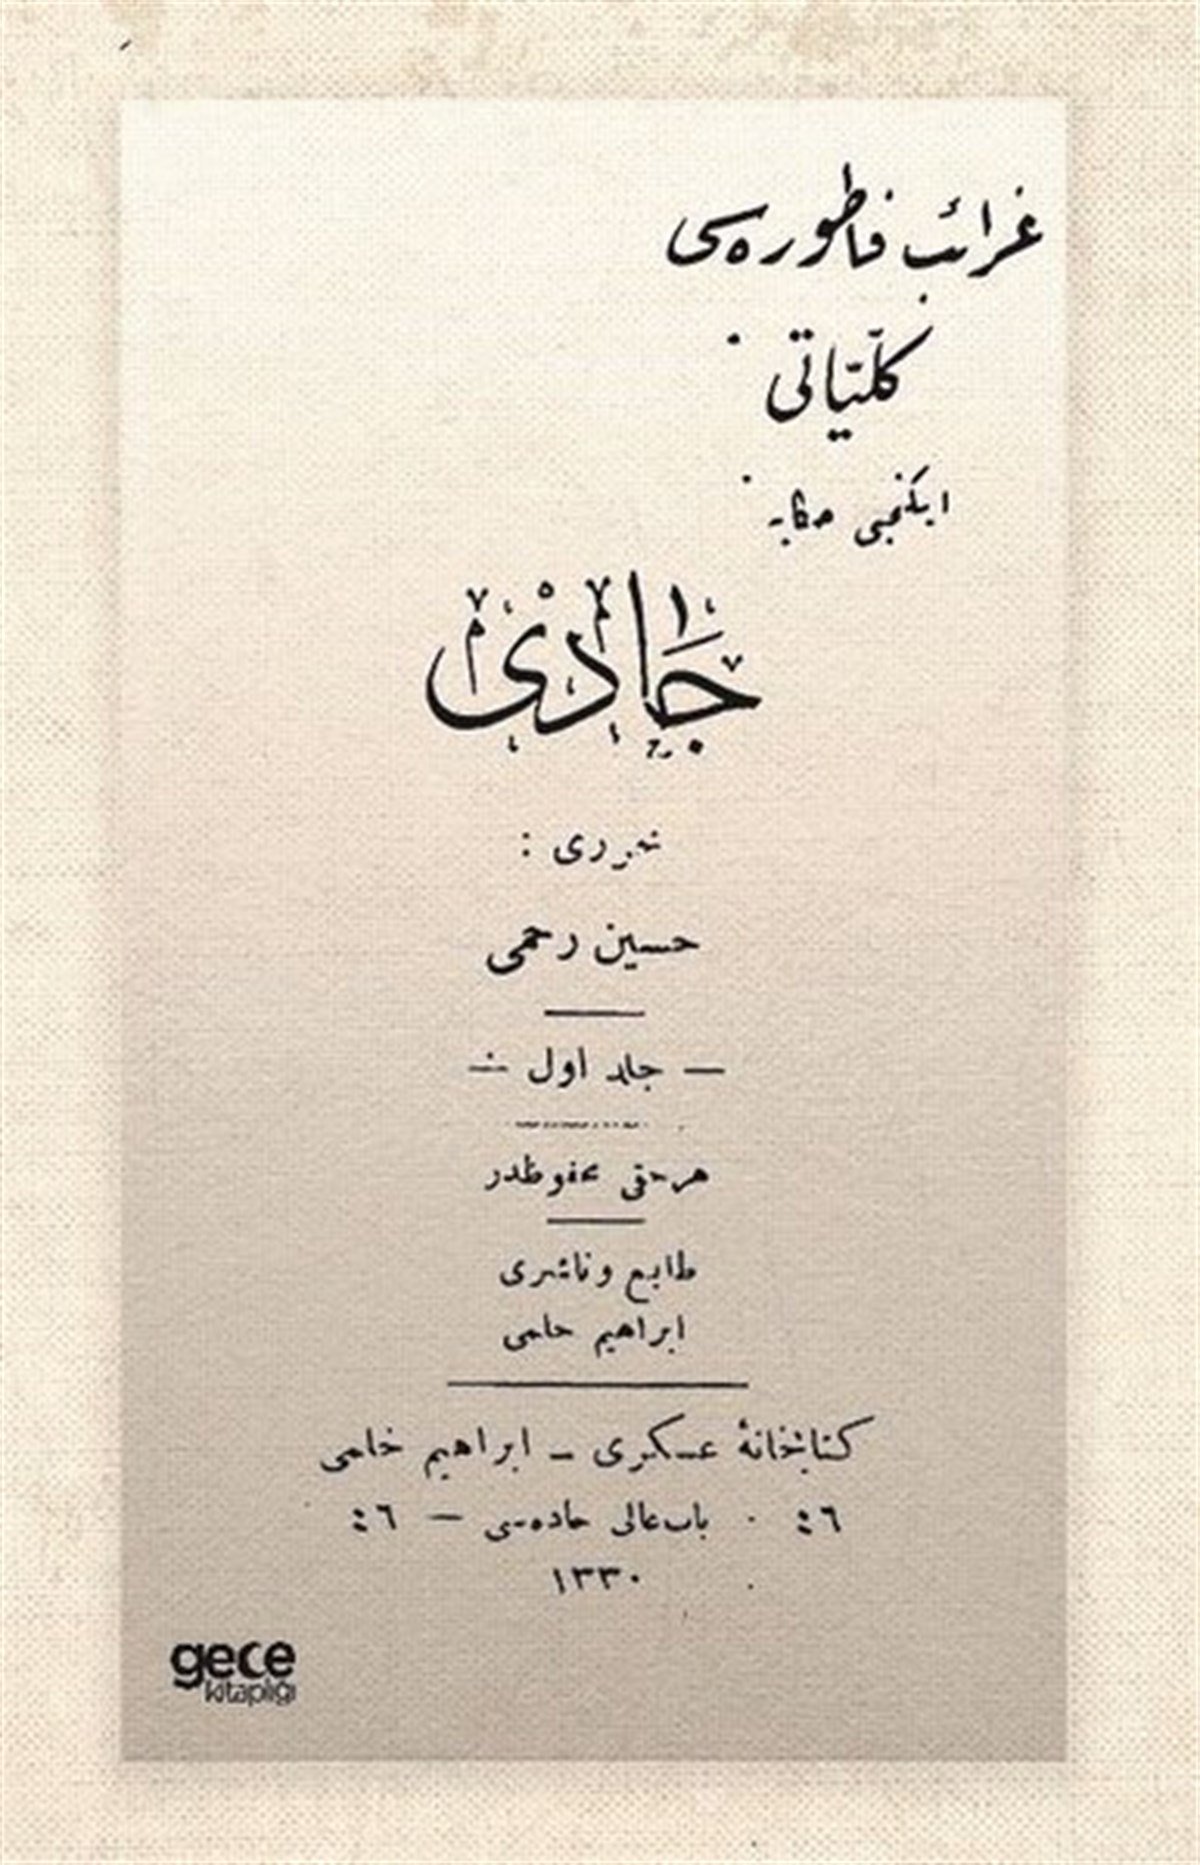 غرائب فاطوره‌سی
كلّیّاتی
ایكنجی حكایه
جَادیْ
محرری :
حسین رحمی
— جلد اول —
هر حقی محفوظدر
طابع و ناشری
ابراهیم حلمی
كتابخانهٔ عسكری – ابراهیم حلمی
٤٦ باب‌عالی جاده‌سی — ٤٦
١٣٣٠
gece
kitaplığı